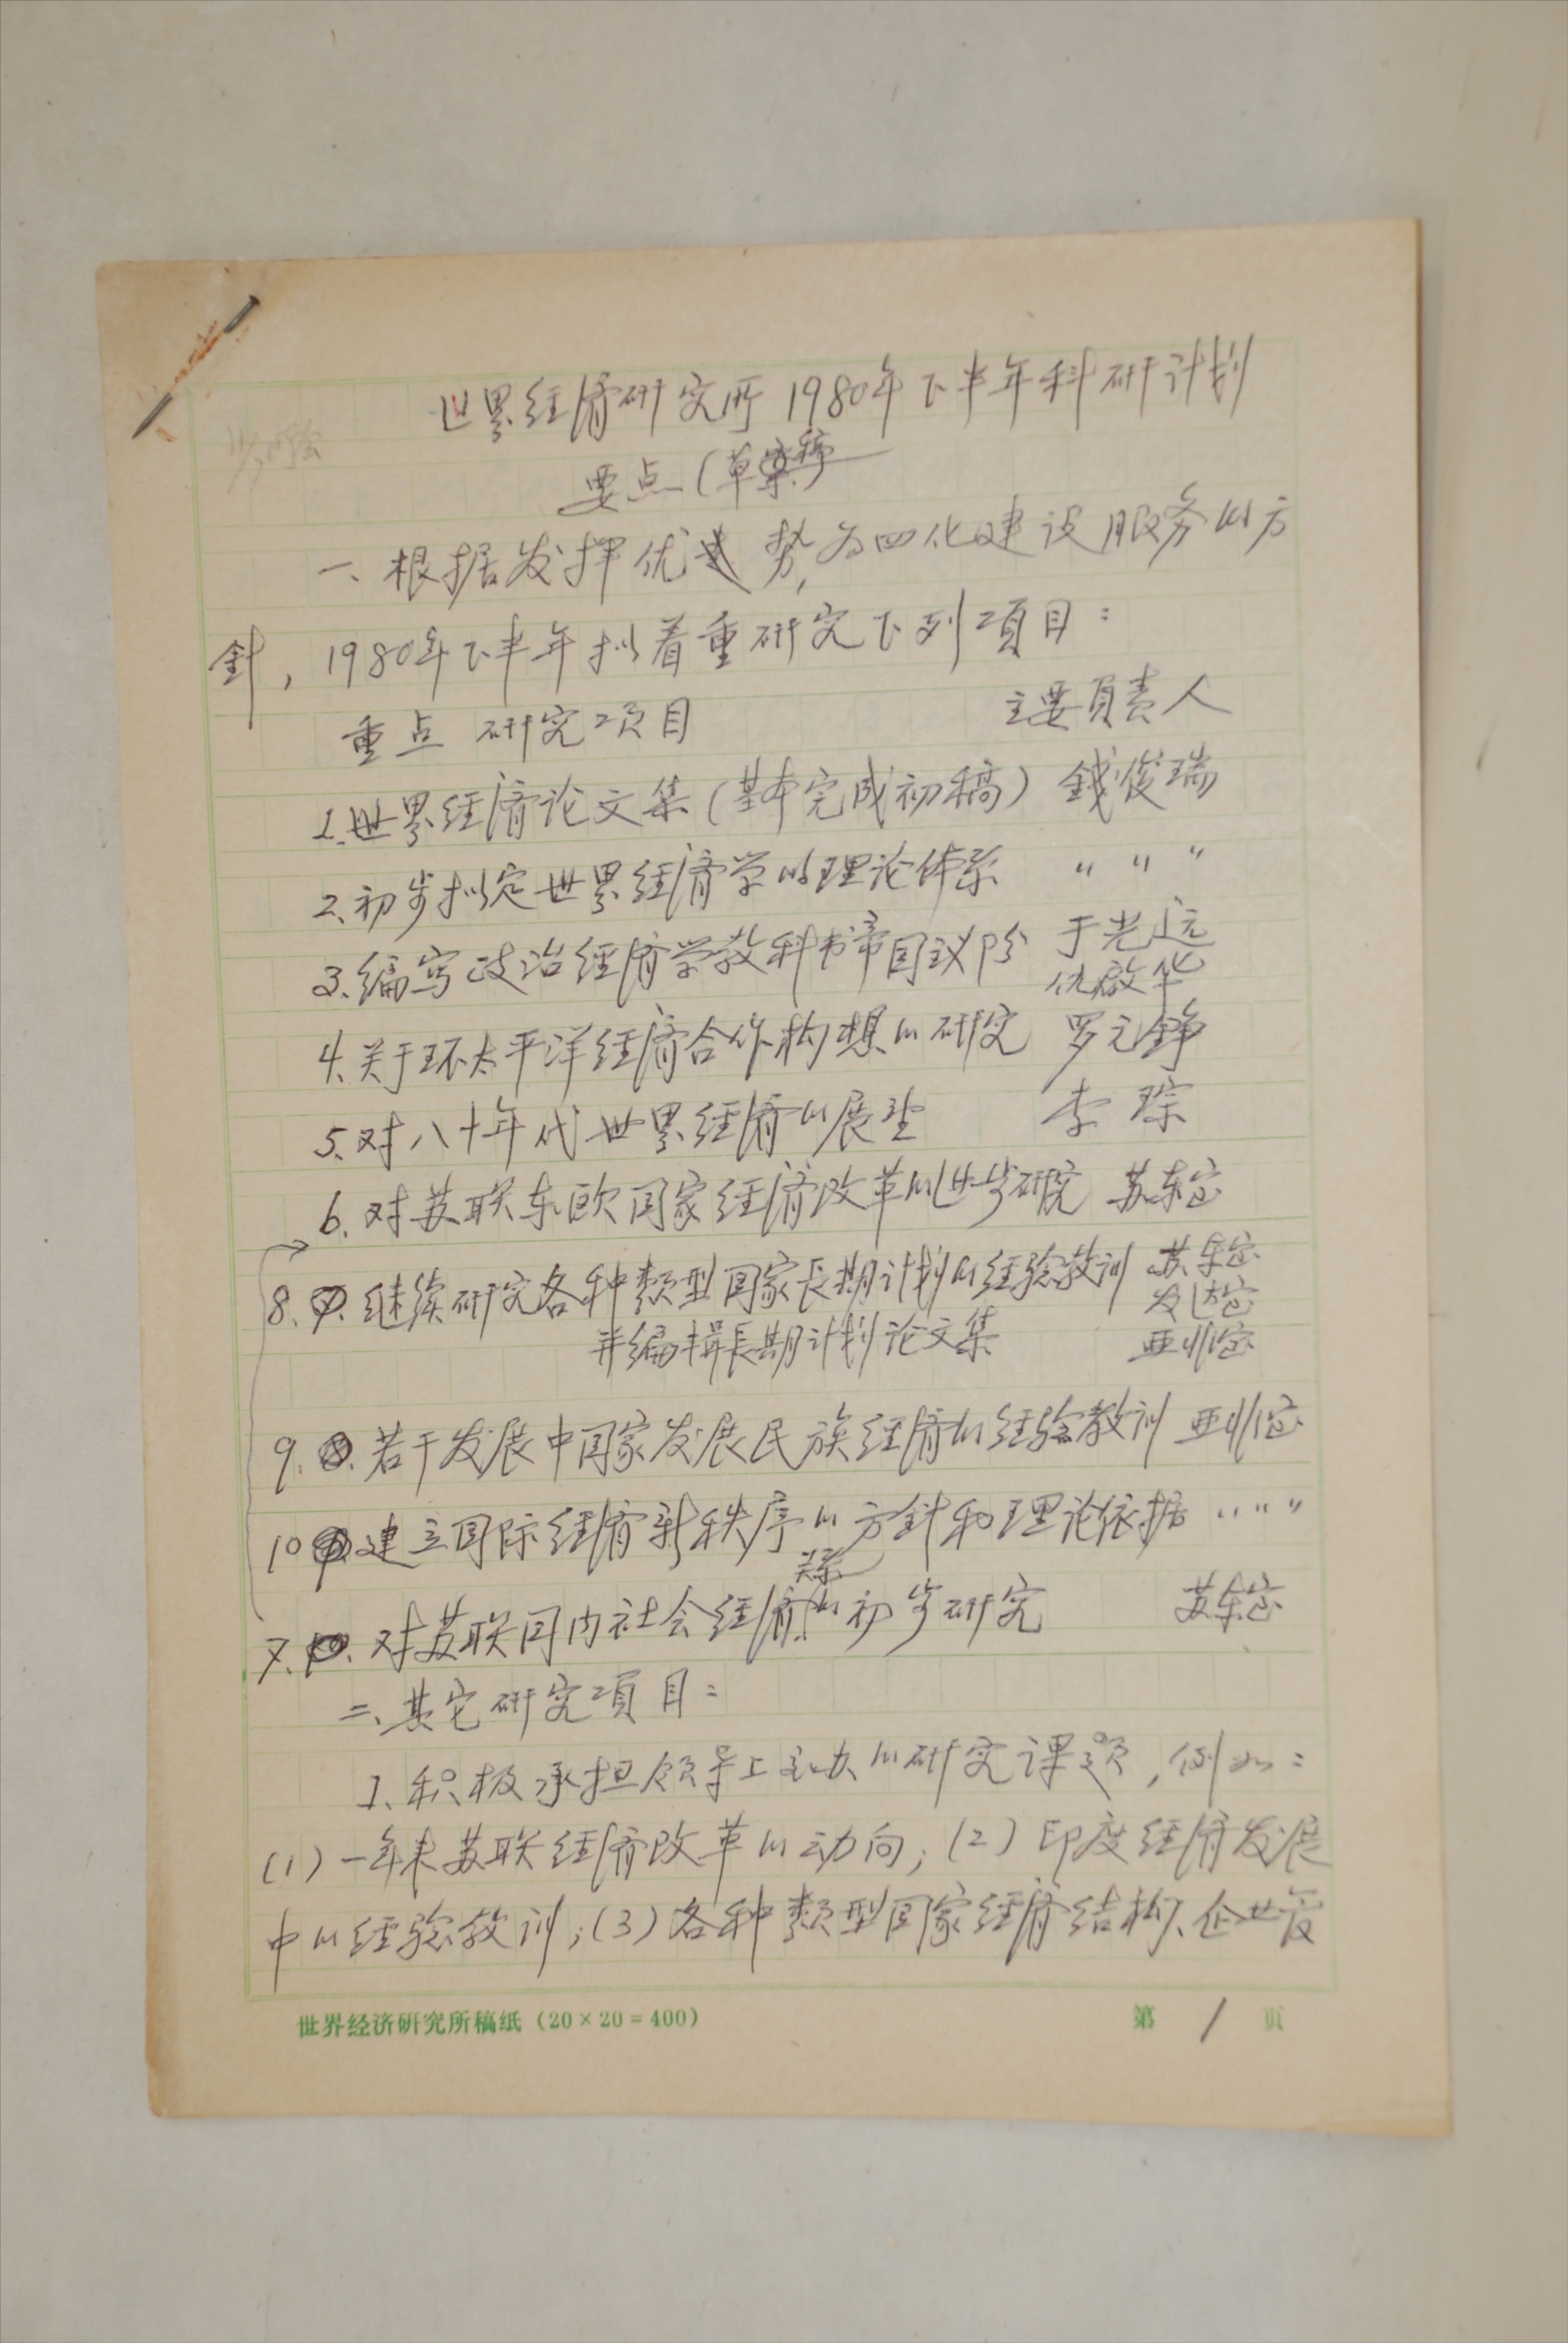 世界经济研究所1980年下半年科研计划
要点(草稿)
一、根据发挥优势,为四化建设服务的方
针,1980年下半年拟着重研究下列项目:
重点研究项目 主要負责人
1.世界经济论文集(基本完成初稿) 錢俊瑞
2.初步拟定世界经济学的理论体系 〃 〃 〃
3.编写政治经济学教科书帝国主义部分 于光远
仇启华
4.关于环太平洋经济合作构想的研究 罗元铮
5.对八十年代世界经济的展望 李琮
6.对苏联东欧国家经济改革的进一步研究 苏东室
8.继续研究各种类型国家长期计划的经验教训 苏东室
发达室
并编辑長期计划论文集 亚非室
9.若干发展中国家发展民族经济的经验教训 亚非室
10建立国际经济新秩序的方針和理论依据 〃 〃 〃
7.对苏联国内社会经济关系的初步研究 苏东室
二、其它研究項目:
1.积极承担领导上交办的研究课题,例如:
(1)一年来苏联经济改革的动向;(2)印度经济发展
中的经验教训;(3)各种类型国家经济结构、企业管
世界经济研究所稿纸(20×20=400) 第 1 页